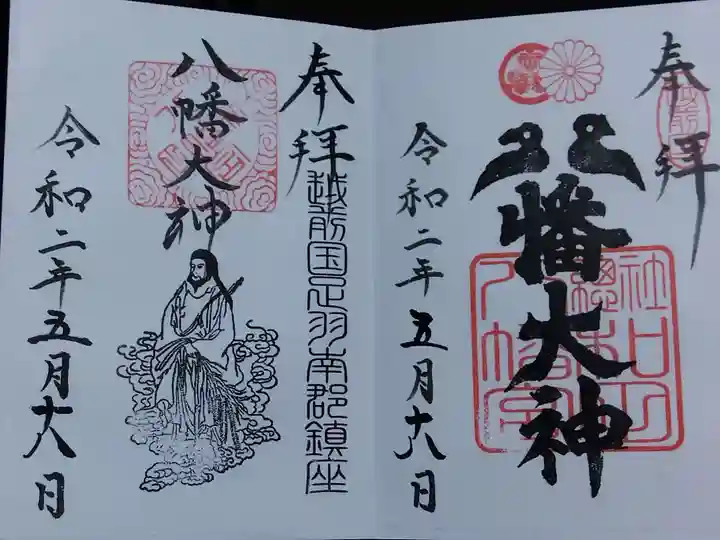 奉拝
八幡大神
令和二年五月十八日
奉拝
越前国足羽南郡鎮座
八幡大神
令和二年五月十八日